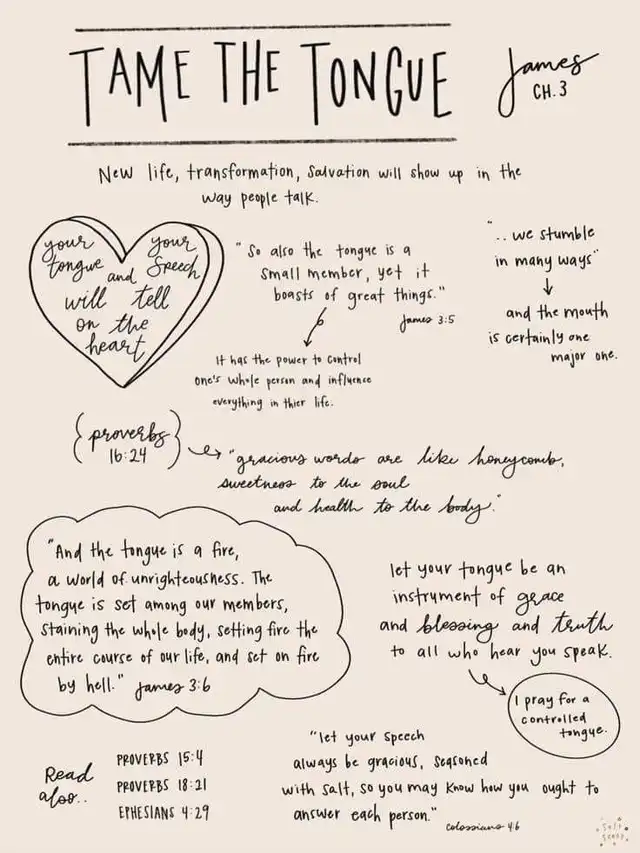 TAME THE TONGUE
James
CH. 3
New life, transformation, salvation will show up in the
way people talk.
your your
tongue and speech
will tell
on the
heart
"So also the tongue is a
small member, yet it
boasts of great things."
James 3:5
It has the power to control
one's whole person and influence
everything in thier life.
".. we stumble
in many ways"
and the mouth
is certainly one
major one.
proverbs
16:24
"gracious words are like honeycomb,
sweetness to the soul
and health to the body."
"And the tongue is a fire,
a world of unrighteousness. The
tongue is set among our members,
staining the whole body, setting fire the
entire course of our life, and set on fire
by hell." James 3:6
let your tongue be an
instrument of grace
and blessing and truth
to all who hear you speak.
I pray for a
controlled
tongue.
Read
also..
PROVERBS 15:4
PROVERBS 18:21
EPHESIANS 4:29
"let your speech
always be gracious, seasoned
with salt, so you may know how you ought to
answer each person."
Colossians 4:6
salt